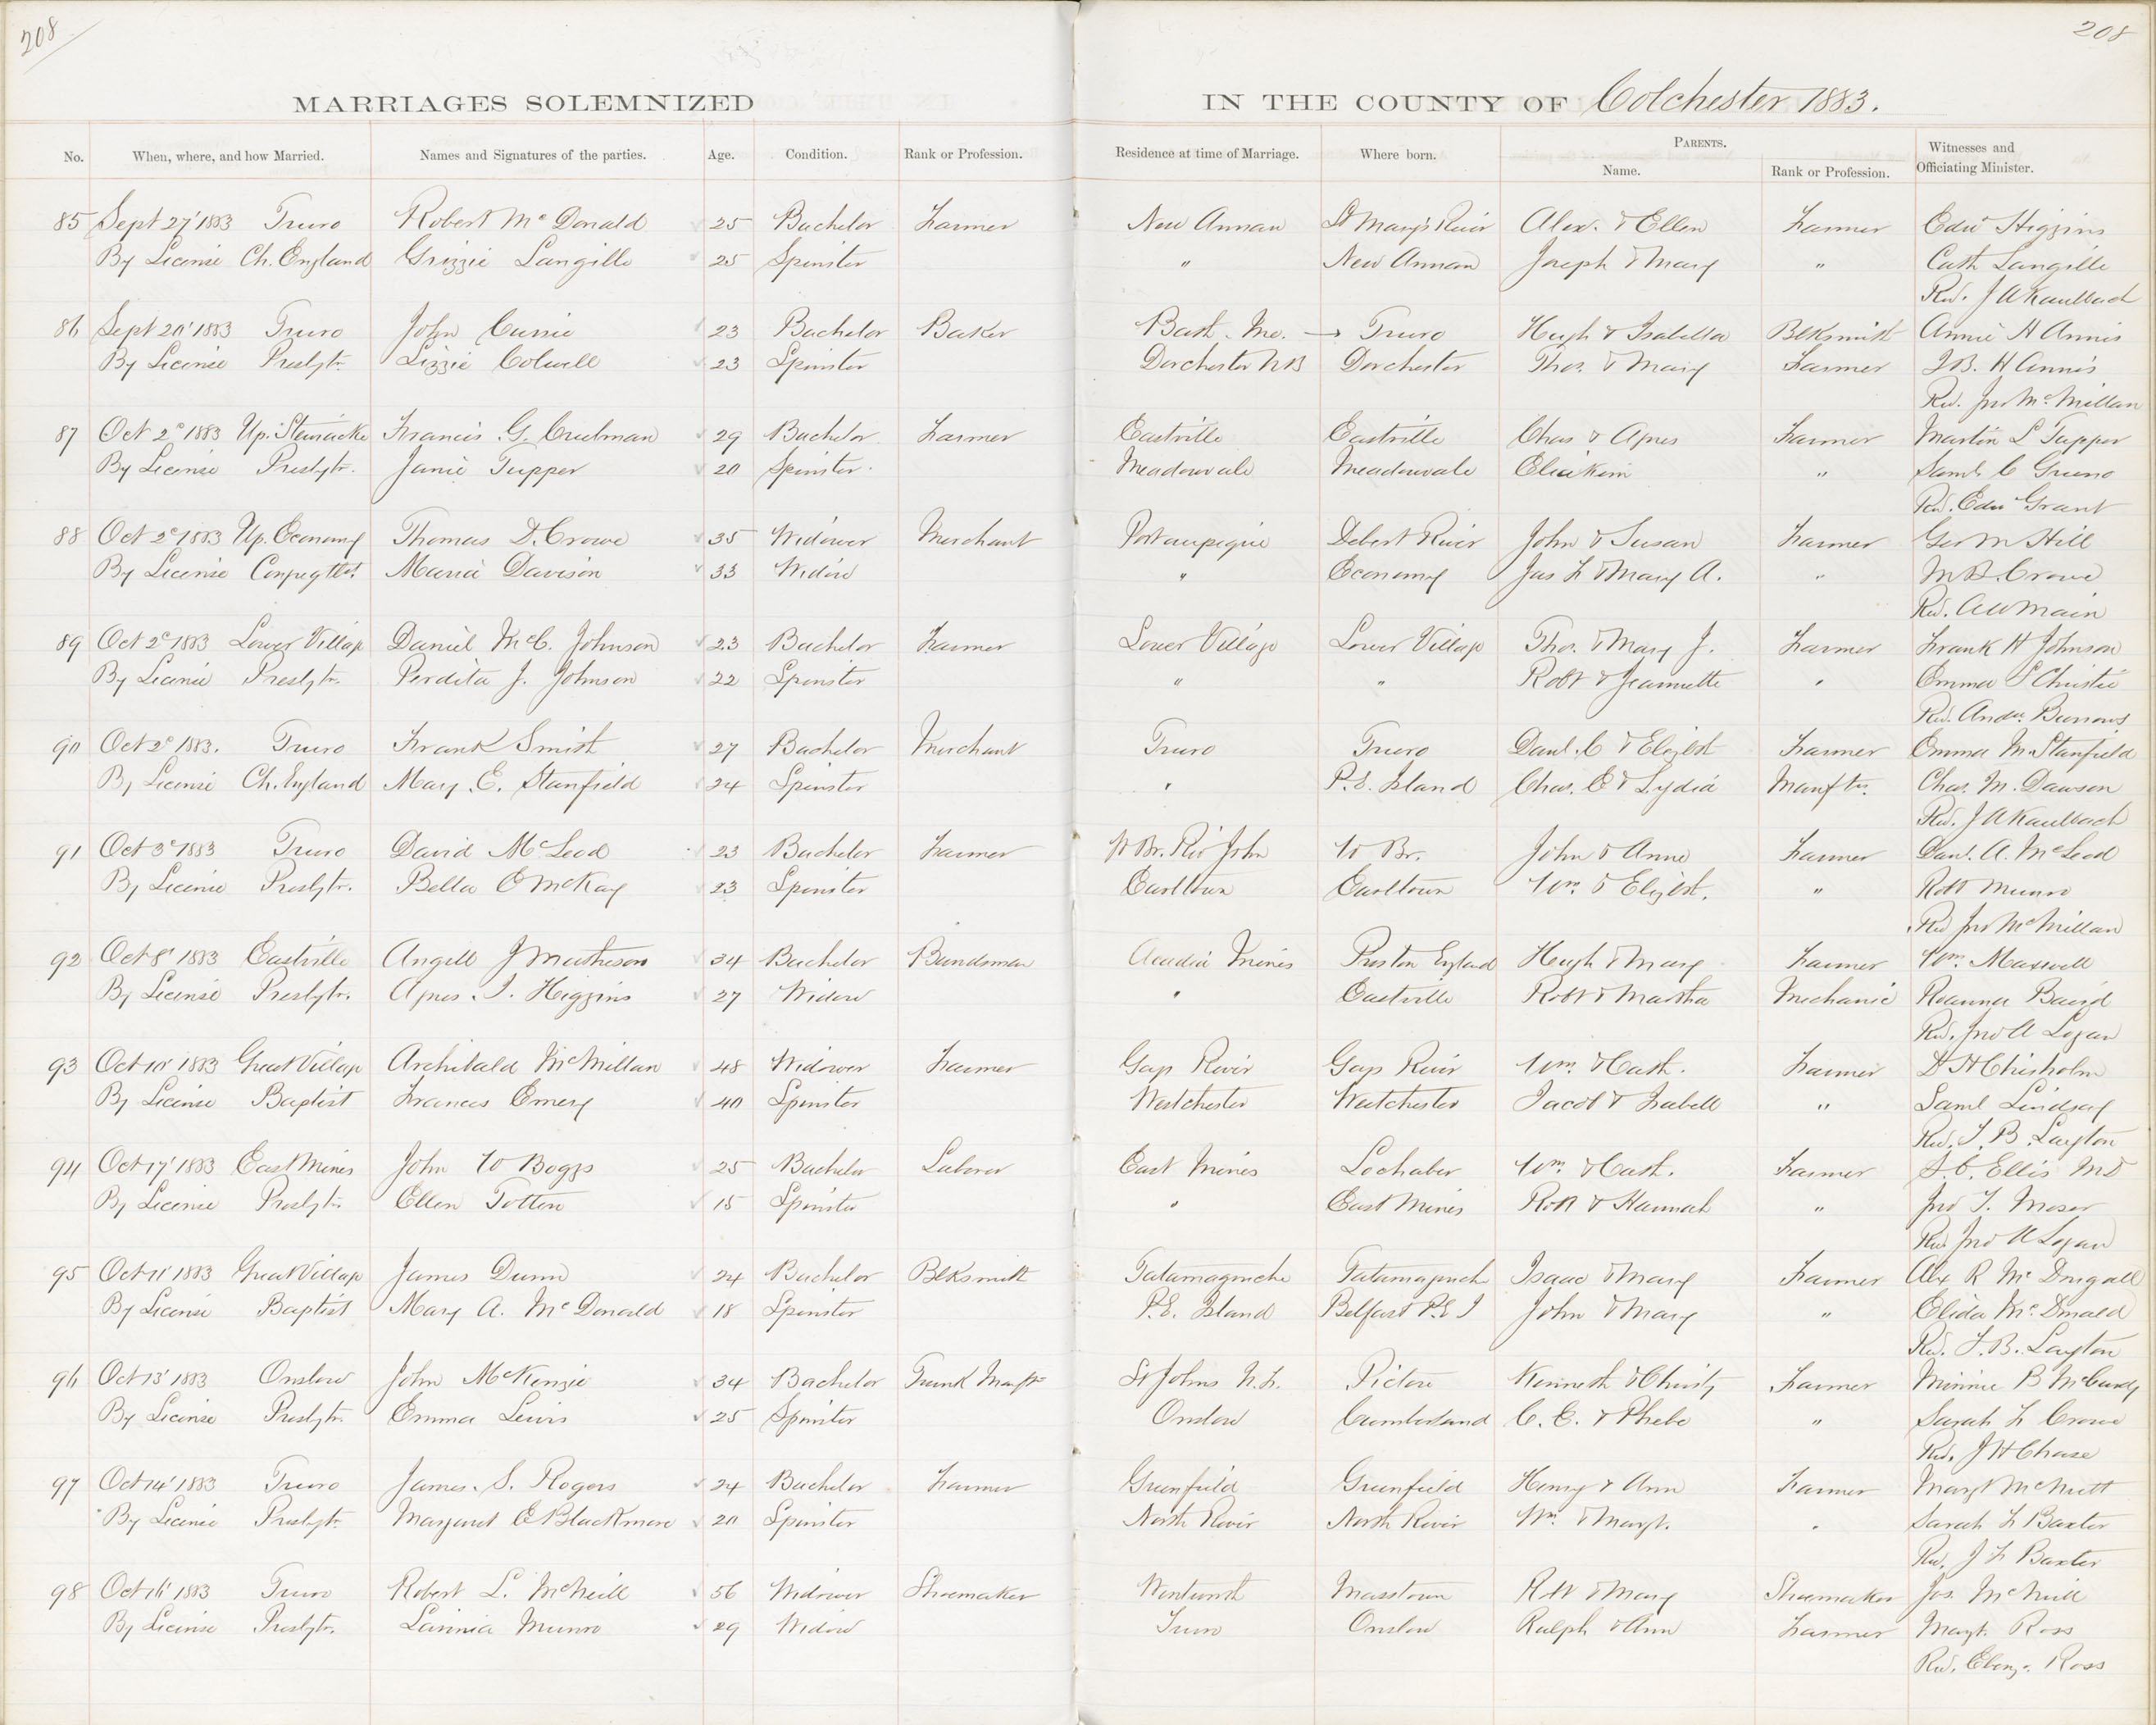 208
208
MARRIAGES SOLEMNIZED IN THE COUNTY OF Colchester 1883.
No. When, where, and how Married. Names and Signatures of the parties. Age. Condition. Rank or Profession. Residence at time of Marriage. Where born. PARENTS. Name. Rank or Profession. Witnesses and Officiating Minister.
85 Sept 27' 1883 Truro Robert Mc Donald 25 Bachelor Farmer New Annan St Mary's River Alex. & Ellen Farmer Edwd Higgins
By License Ch. England Grizzie Langille 25 Spinster " New Annan Joseph & Mary " Cath Langille
Rev. J A Kaulbach
86 Sept 20' 1883 Truro John Currie 23 Bachelor Baker Bath. Me. Truro Hugh & Isabella Blksmith Annie H Annis
By License Presbytr. Lizzie Colwell 23 Spinster Dorchester NB Dorchester Thos. & Mary Farmer H Annis
Rev. Jno McMillan
87 Oct 2d 1883 Up. Stewiacke Francis G. Creelman 29 Bachelor Farmer Eastville Eastville Chas & Agnes Farmer Martin L Tupper
By License Presbytr. Janie Tupper 20 Spinster Meadowvale Meadowvale Eliakim " Saml C
Rev. Edw Grant
88 Oct 2d 1883 Up. Economy Thomas D. Crowe 35 Widower Merchant Portaupique Debert River John & Susan Farmer Geo M Hill
By License Congegtl. Maria Davison 33 Widow " Economy Jas F & Mary A. " M B. Crowe
Rev. A W Main
89 Oct 2d 1883 Lower Village Daniel McC. Johnson 23 Bachelor Farmer Lower Village Lower Village Thos. & Mary J. Farmer Frank H Johnson
By License Presbytr. Perdita J. Johnson 22 Spinster " " Robt & Jeannette " Emma S Christie
Rev. Andw. Burrows
90 Oct 2d 1883. Truro Frank Smith 27 Bachelor Merchant Truro Truro Danl. C & Elizbt Farmer Emma M. Stanfield
By License Ch. England Mary. E. Stanfield 24 Spinster " P. E. Island Chas. E & Lydia Manftr. Chas. M. Dawson
Rev. J A Kaulbach
91 Oct 3d 1883 Truro David McLeod 23 Bachelor Farmer W Br. Riv John W Br. John & Anne Farmer Danl. A. McLeod
By License Presbytr. Bella C McKay 23 Spinster Earltown Earltown Wm. & Elizbt. " Robt Munro
Rev Jno McMillan
92 Oct 8' 1883 Eastville Angell J Matheson 34 Bachelor Bandsman Acadia Mines Preston England Hugh & Mary Farmer Wm. Maxwell
By License Presbytr. Agnes. I. Higgins 27 Widow " Eastville Robt & Martha Mechanic Roanna Baird
Rev. Jno A Logan
93 Oct 10' 1883 Great Village Archibald McMillan 48 Widower Farmer Gays River Gays River Wm. & Cath. Farmer D H Chisholm
By License Baptist Frances Emery 40 Spinster Westchester Westchester Jacob & Isabell " Saml Lindsay
Rev. F. B. Layton
94 Oct 17' 1883 East Mines John W Boggs 25 Bachelor Laborer East Mines Lochaber Wm. & Cath. Farmer S. C. Ellis MD
By License Presbytr. Ellen Totten 15 Spinster " East Mines Robt & Hannah " Jno F. Moser
Rev Jno A Logan
95 Oct 11' 1883 Great Village James Dunn 24 Bachelor Blksmith Tatamagouche Tatamagouche Isaac & Mary Farmer Alx R McDougall
By License Baptist Mary A. McDonald 18 Spinster P. E. Island Belfast P. E I John & Mary " Elida McDonald
Rev. F. B. Layton
96 Oct 13' 1883 Onslow John McKenzie 34 Bachelor Trunk Manftr St Johns N. F. Pictou Kenneth & Christy Farmer Minnie B McCurdy
By License Presbytr. Emma Lewis 25 Spinster Onslow Cumberland C. E. & Phebe " Sarah F Crowe
Rev. J H Chase
97 Oct 14' 1883 Truro James. S. Rogers 24 Bachelor Farmer Greenfield Greenfield Henry & Ann Farmer Margt McNutt
By License Presbytr. Margaret E Blackmore 20 Spinster North River North River Wm. & Margt. " Sarah F Baxter
Rev. J F Baxter
98 Oct 16' 1883 Truro Robert L. McNeill 56 Widower Shoemaker Wentworth Masstown Robt & Mary Shoemaker Jos. McNeill
By License Presbytr. Lavinia Munro 29 Widow Truro Onslow Ralph & Ann Farmer Margt. Ross
Rev. Ebenz. Ross